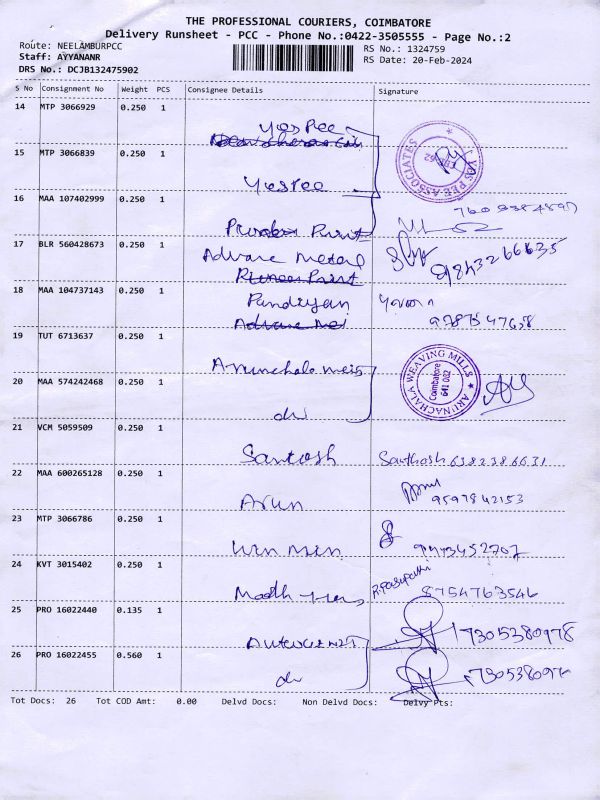 THE PROFESSIONAL COURIERS, COIMBATORE
Delivery Runsheet - PCC - Phone No.:0422-3505555 - Page No.:2
Route: NEELAMBURPCC
RS No.: 1324759
Staff: AYYANANR
RS Date: 20-Feb-2024
DRS No.: DCJB132475902
S No Consignment No Weight PCS Consignee Details Signature
14 MTP 3066929 0.250 1
Yespee
15 MTP 3066839 0.250 1
YAS PEE ASSOCIATES
Yespee
16 MAA 107402999 0.250 1
Print
17 BLR 560428673 0.250 1
Advance Metal
9843266635
Print
18 MAA 104737143 0.250 1
Pandiyan
9787547658
19 TUT 6713637 0.250 1
ARUNACHALA WEAVING MILLS
Coimbatore
641 062
20 MAA 574242468 0.250 1
do
21 VCM 5059509 0.250 1
Santosh Santhosh 6382386631
22 MAA 600265128 0.250 1
Arun 9597842153
23 MTP 3066786 0.250 1
24 KVT 3015402 0.250 1
R.Pasupathi 8754763546
25 PRO 16022440 0.135 1
7305380978
26 PRO 16022455 0.560 1
do
Tot Docs: 26 Tot COD Amt: 0.00 Delvd Docs: Non Delvd Docs: Delvy Pts: